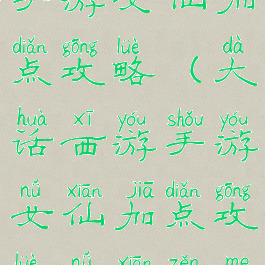 diǎn gōng lüè dà
点攻略（大
huà xī yóu shǒu yóu
话西游手游
nǚ xiān jiā diǎn gōng
女仙加点攻
lüè nǚ xiān zěn me